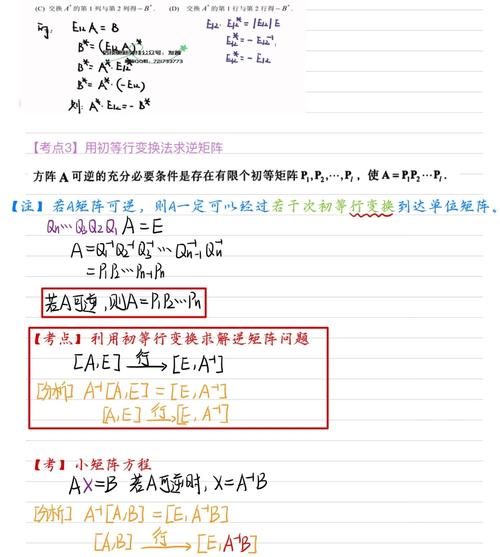 (C) 交换 A* 的第 1 列与第 2 列得 −B*. (D) 交换 A* 的第 1 行与第 2 行得 −B*.
E₁₂A = B
B* = (E₁₂A)*
B* = A*·E₁₂*
B* = A*·(−E₁₂)
则: A*·E₁₂ = −B*
E₁₂·E₁₂* = |E₁₂|E
E₁₂* = −E₁₂⁻¹
E₁₂* = −E₁₂
【考点3】用初等行变换法求逆矩阵
方阵 A 可逆的充分必要条件是存在有限个初等矩阵 P₁,P₂,⋯,Pₗ, 使 A = P₁P₂⋯Pₗ.
【注】若A矩阵可逆, 则A一定可以经过若干次初等行变换到达单位矩阵。
Qn⋯Q₃Q₂Q₁A = E
A = Q₁⁻¹Q₂⁻¹Q₃⁻¹⋯Qn-1⁻¹Qn⁻¹
= P₁P₂⋯Pn-1Pn
若A可逆,则A=P₁P₂⋯Pn
【考点】利用初等行变换求解逆矩阵问题
[A,E] 行→ [E,A⁻¹]
[分析] A⁻¹[A,E] = [E,A⁻¹]
[A,E] 行→ [E,A⁻¹]
【考】小矩阵方程
AX=B 若A可逆时, X=A⁻¹B
[分析] A⁻¹[A,B] = [E,A⁻¹B]
[A,B] 行→ [E,A⁻¹B]